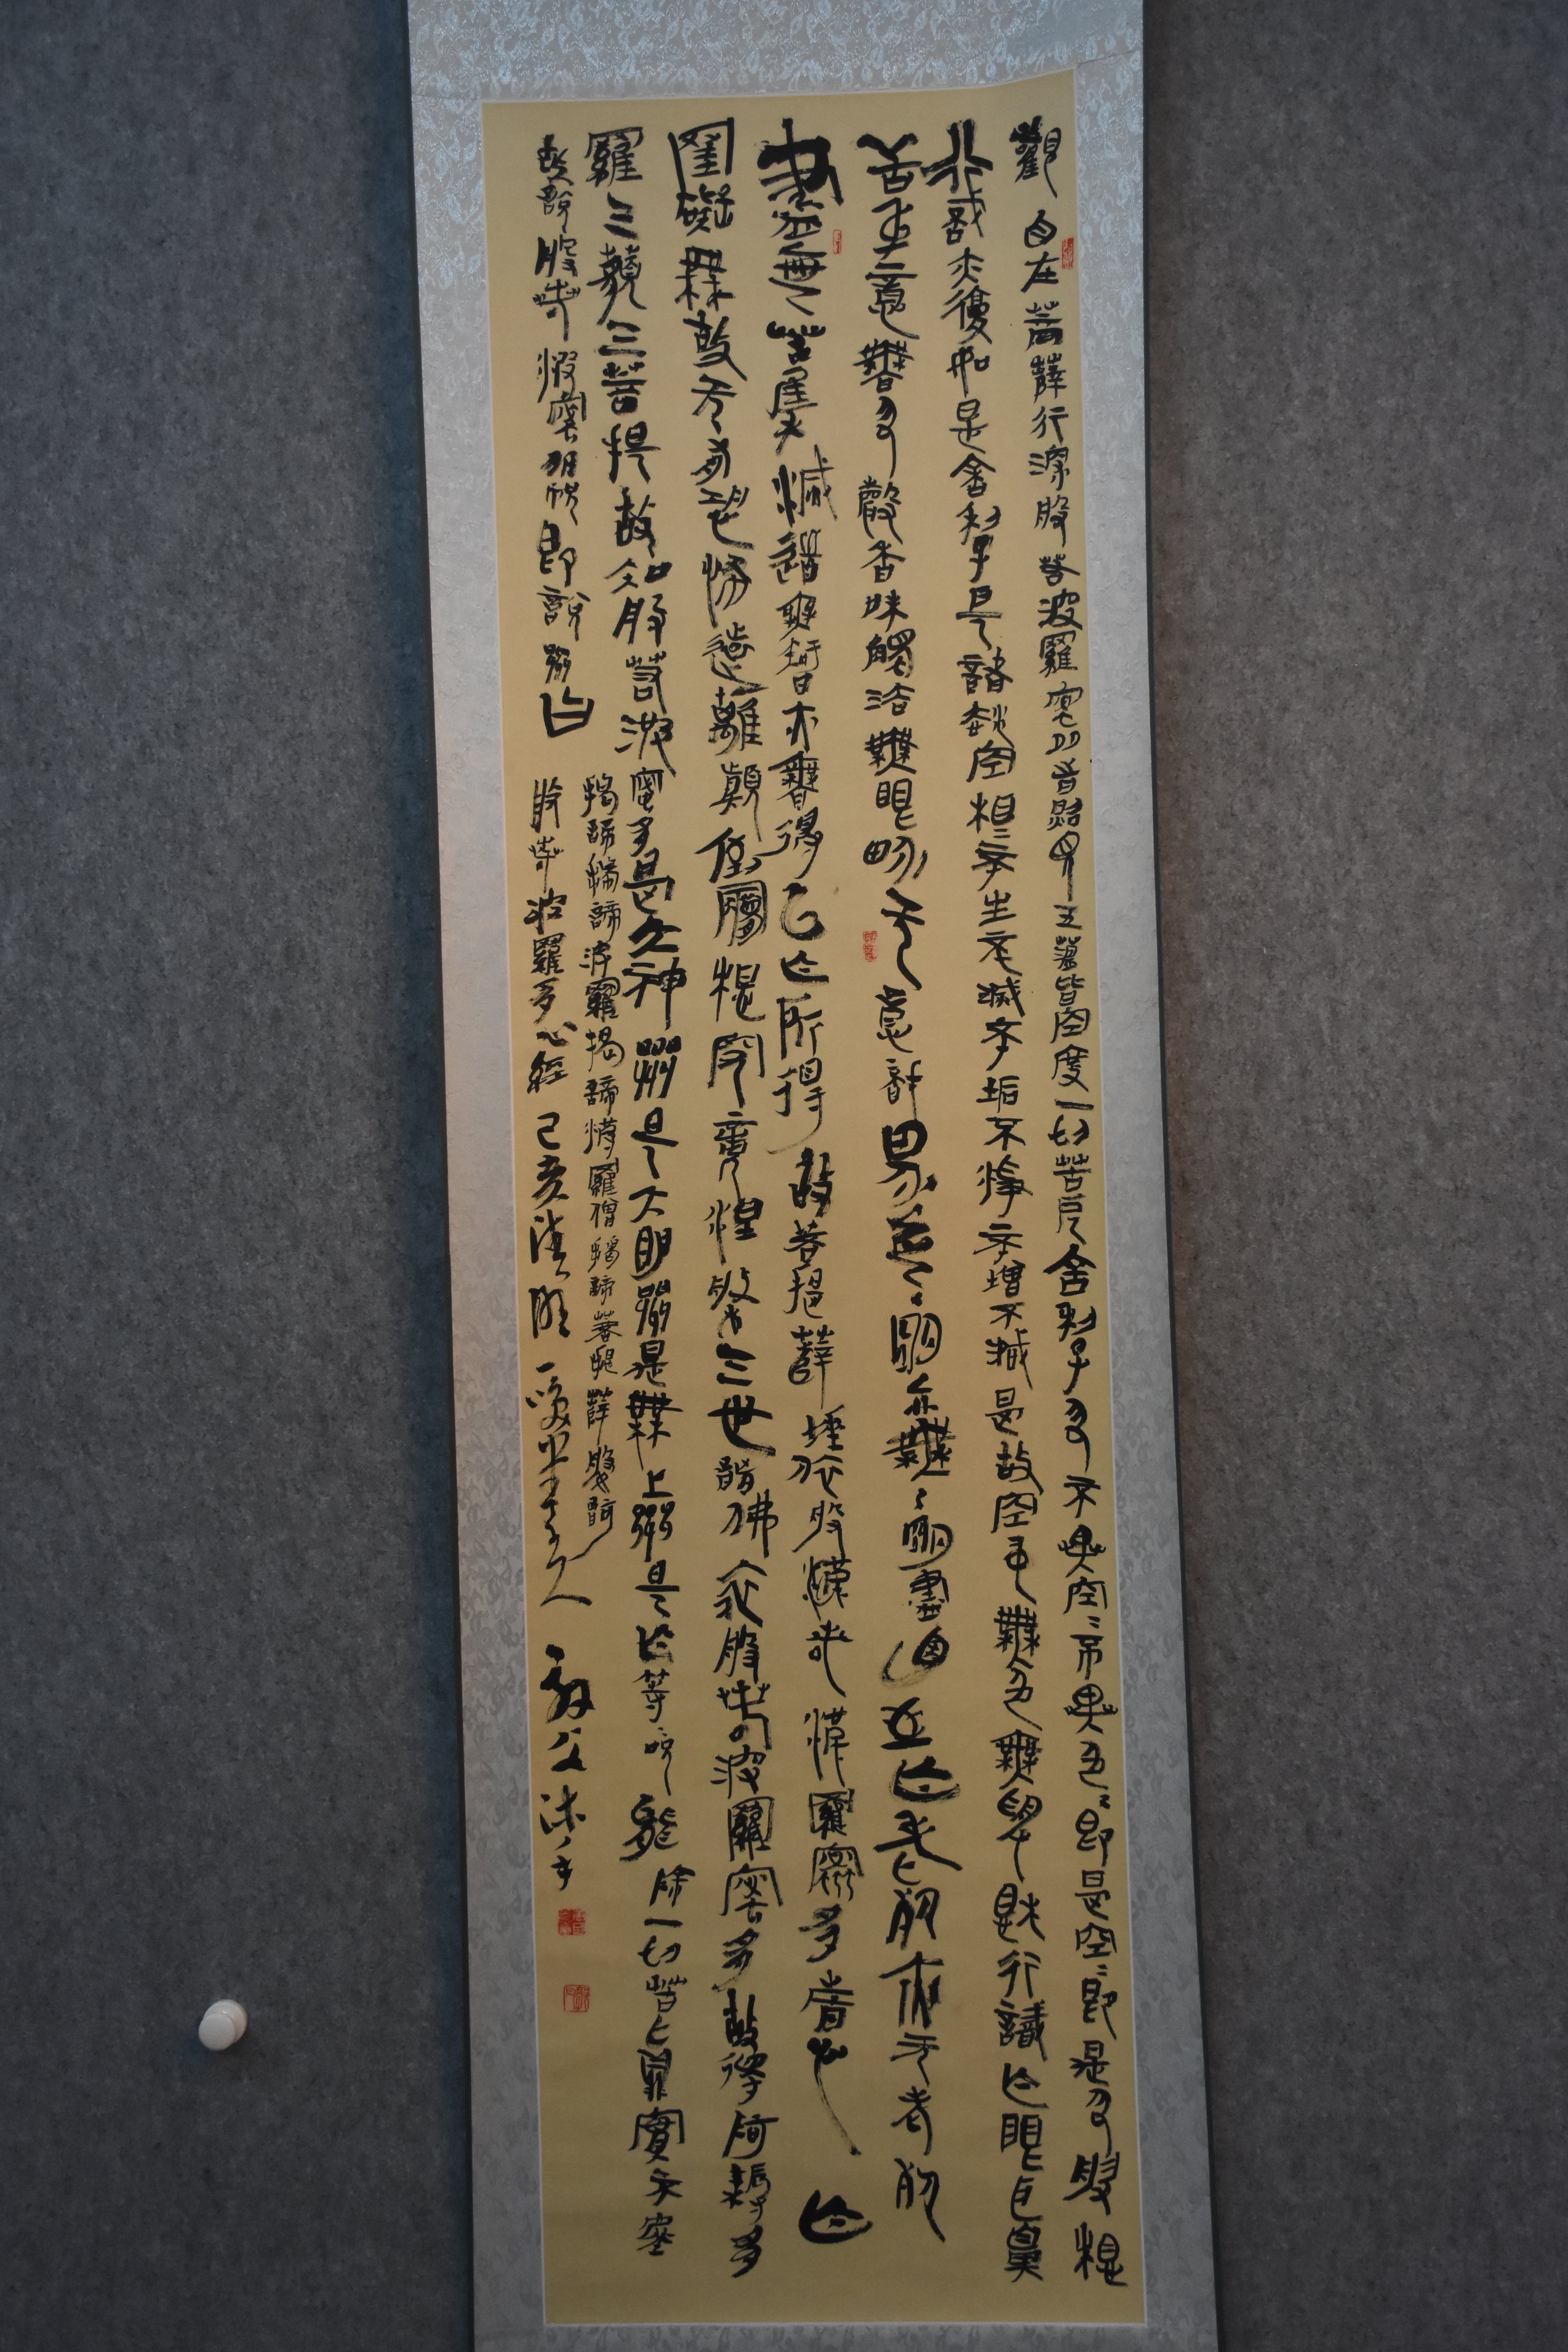 觀自在菩薩行深般若波羅密多時照見五蘊皆空度一切苦厄舍利子色不異空空不異色色即是空空即是色受想
行識亦復如是舍利子是諸法空相不生不滅不垢不淨不增不減是故空中無色無受想行識無眼耳鼻
舌身意無色聲香味觸法無眼界無意識界無無明亦無無明盡乃至無老死亦無老死
盡無苦集滅道無智亦無得以無所得故菩提薩埵依般若波羅密多故心無
罣礙無罣礙故無有恐怖遠離顛倒夢想究竟涅槃三世諸佛依般若波羅密多故得阿耨多
羅三藐三菩提故知般若波羅蜜多是大神咒是大明咒是無上咒是無等等咒能除一切苦真實不虛
故說般若波羅密多咒即說咒曰
揭諦揭諦波羅揭諦波羅僧揭諦菩提薩婆訶
般若波羅多心經 己亥清明